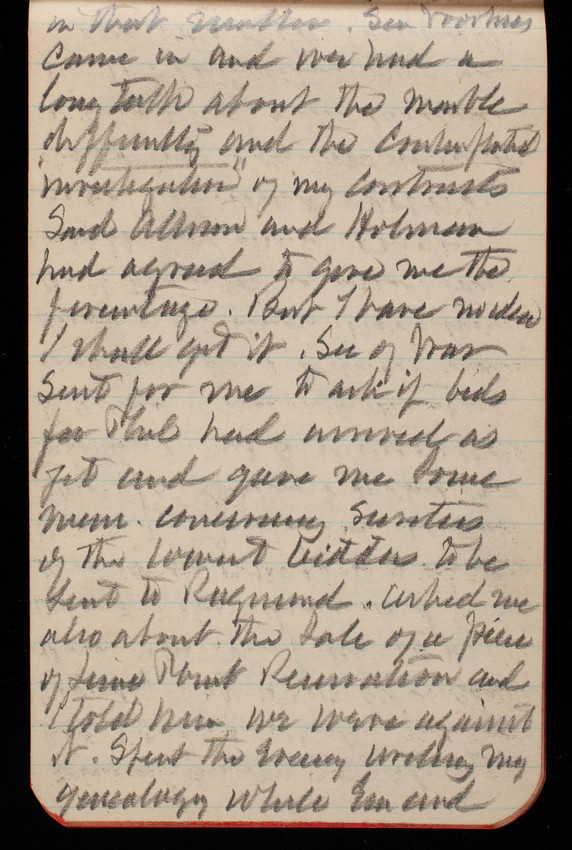 in that matter. Sen Voorhees
came in and we had a
long talk about the marble
difficulty and the contemplated
"investigation" of my contracts
Said Allison and Holman
had agreed to give me the
percentage. But I have no idea
I shall get it. Sec of War
sent for me to ask if bids
for Phil had arrived as
yet and gave me some
mem. concerning sureties
of the lowest bidders to be
sent to Raymond. Asked me
also about the sale of a piece
of Lime Point Reservation and
I told him we were against
it. Spent the evening working my
genealogy while Em and